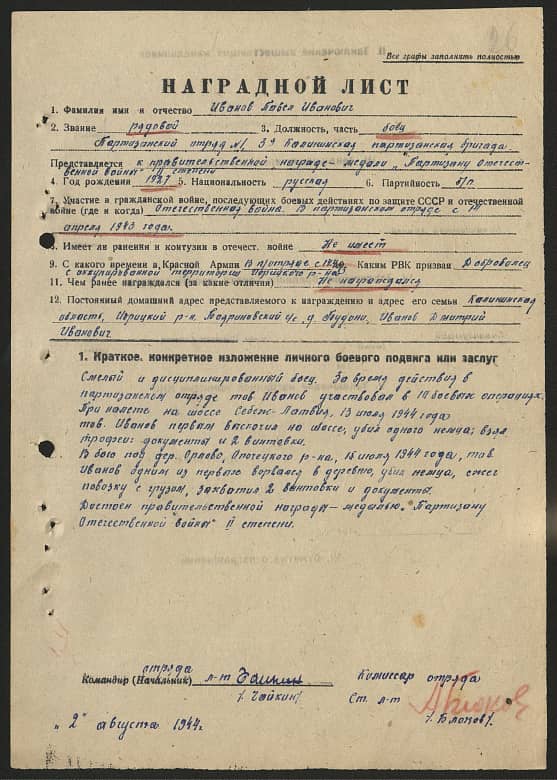 26
Все графы заполнять полностью
НАГРАДНОЙ ЛИСТ
1. Фамилия имя и отчество Иванов Павел Иванович
2. Звание рядовой 3. Должность, часть боец
Партизанский отряд №1, 3я Калининская партизанская бригада
Представляется к правительственной награде медали „Партизану Отечест-
венной войны" II степени
4. Год рождения 1927 5. Национальность русская 6. Партийность б/п
7. Участие в гражданской войне, последующих боевых действиях по защите СССР и отечественной
войне (где и когда) Отечественная война. В партизанском отряде с
апреля 1943 года.
8. Имеет ли ранения и контузии в отечест. войне Не имеет
9. С какого времени в Красной Армии В п/отряде с Каким РВК призван Доброволец
с оккупированной территории Идрицкого р-на
11. Чем ранее награждался (за какие отличия) Не награждался
12. Постоянный домашний адрес представляемого к награждению и адрес его семьи Калининская
область, Идрицкий р-н, с/с, д. Иванов Дмитрий
Иванович
1. Краткое, конкретное изложение личного боевого подвига или заслуг
Смелый и дисциплинированный боец. За время действия в
партизанском отряде тов. Иванов участвовал в 10 боевых операциях.
При налете на шоссе Себеж-Латвия, 13 июля 1944 года
тов. Иванов первым выскочил на шоссе, убил одного немца; взял
трофеи: документы и 2 винтовки.
В бою под дер. Орлово, Опочецкого р-на, 15 июля 1944 года, тов.
Иванов одним из первых ворвался в деревню, убил немца, сжег
повозку с грузом, захватил 2 винтовки и документы.
Достоин правительственной награды — медалью „Партизану
Отечественной войны" II степени.
отряда
Командир (Начальник) л-т Чайкин
/Чайкин/
Комиссар отряда
Ст. л-т
/Блохов/
„2" августа 1944г.